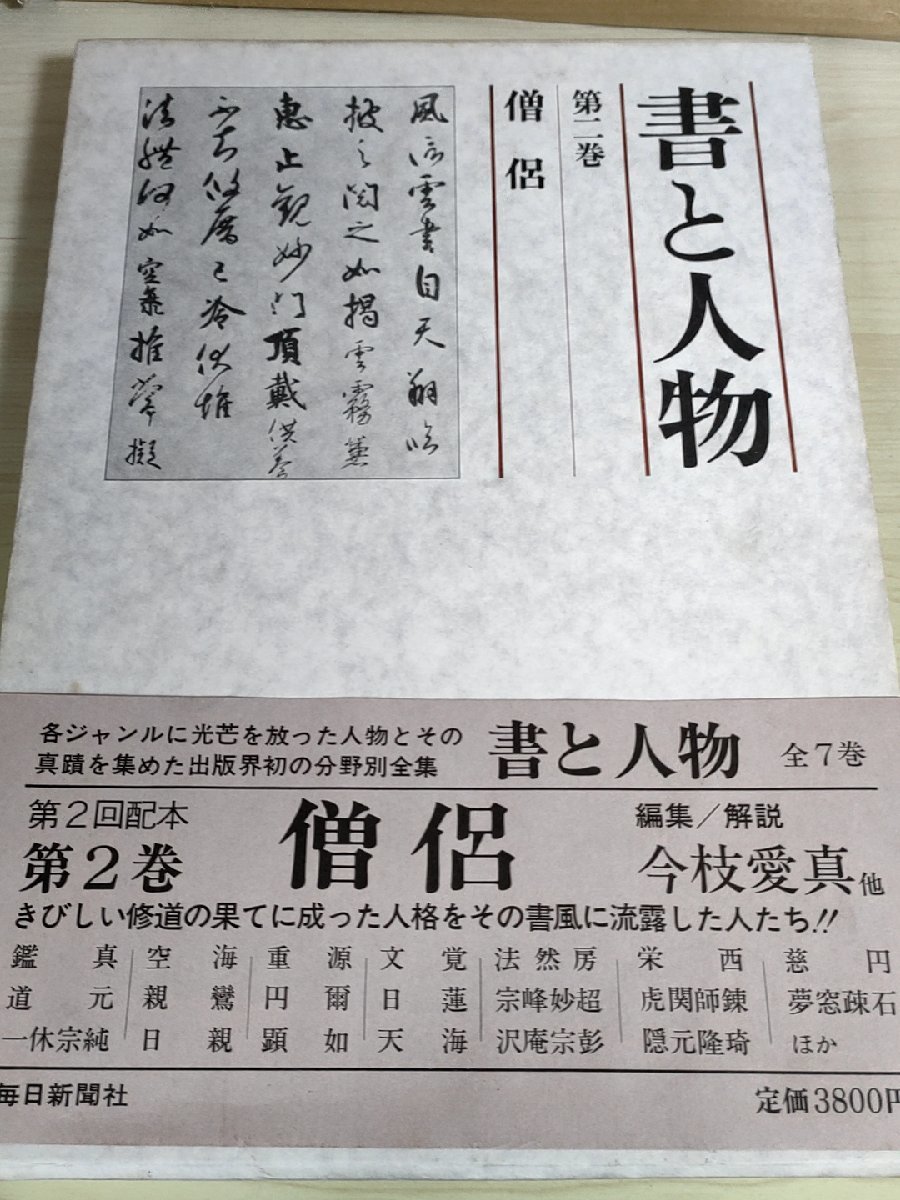 書と人物
第二巻
僧侶
風信雲書自天翔臨
披之閲之如掲雲霧兼
恵止観妙門頂戴供養
不知攸厝已冷伏惟
法體何如空海推常擬
各ジャンルに光芒を放った人物とその
真蹟を集めた出版界初の分野別全集
書と人物 全7巻
第2回配本
第2巻
僧侶
編集／解説
今枝愛真他
きびしい修道の果てに成った人格をその書風に流露した人たち!!
鑑真 空海 重源 文覚 法然房 栄西 慈円
道元 親鸞 円爾 日蓮 宗峰妙超 虎関師錬 夢窓疎石
一休宗純 日親 顕如 天海 沢庵宗彭 隠元隆琦 ほか
毎日新聞社
定価3800円